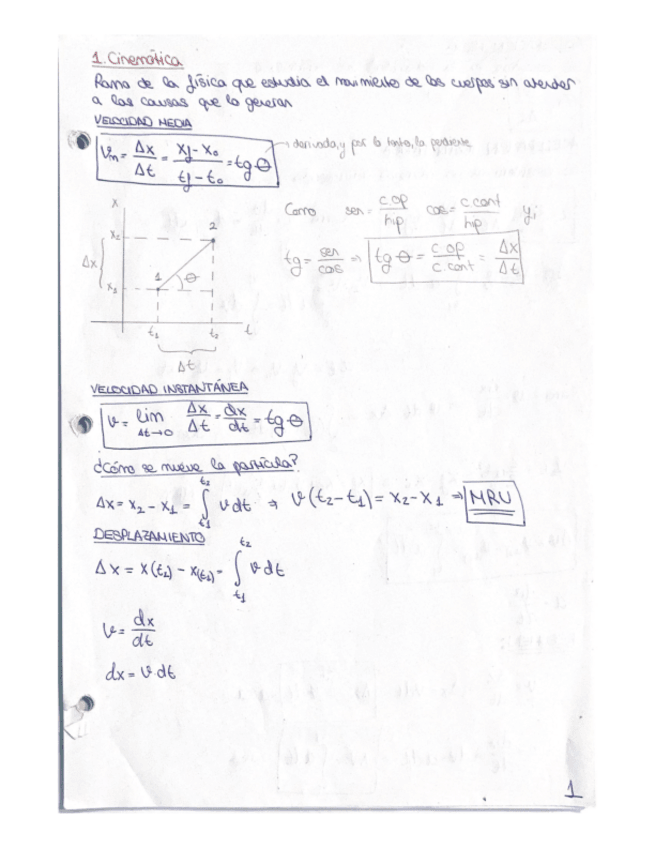 1. Cinemática
Rama de la física que estudia el movimiento de los cuerpos sin atender
a las causas que lo generan
VELOCIDAD MEDIA
Vm = Δx/Δt = (xf - x0)/(tf - t0) = tg θ → derivada, y por lo tanto, la pendiente
Como sen = c.op/hip cos = c.cont/hip y;
tg = sen/cos ⇒ tg θ = c.op/c.cont = Δx/Δt
x
x2
2
Δx
x1
1
θ
t1 t2 t
Δt
VELOCIDAD INSTANTÁNEA
v = lim Δt→0 Δx/Δt = dx/dt = tg θ
¿Cómo se mueve la partícula?
Δx = x2 - x1 = ∫t1t2 v dt → v(t2 - t1) = x2 - x1 ⇒ MRU
DESPLAZAMIENTO
Δx = x(t2) - x(t1) = ∫t1t2 v dt
v = dx/dt
dx = v·dt
1